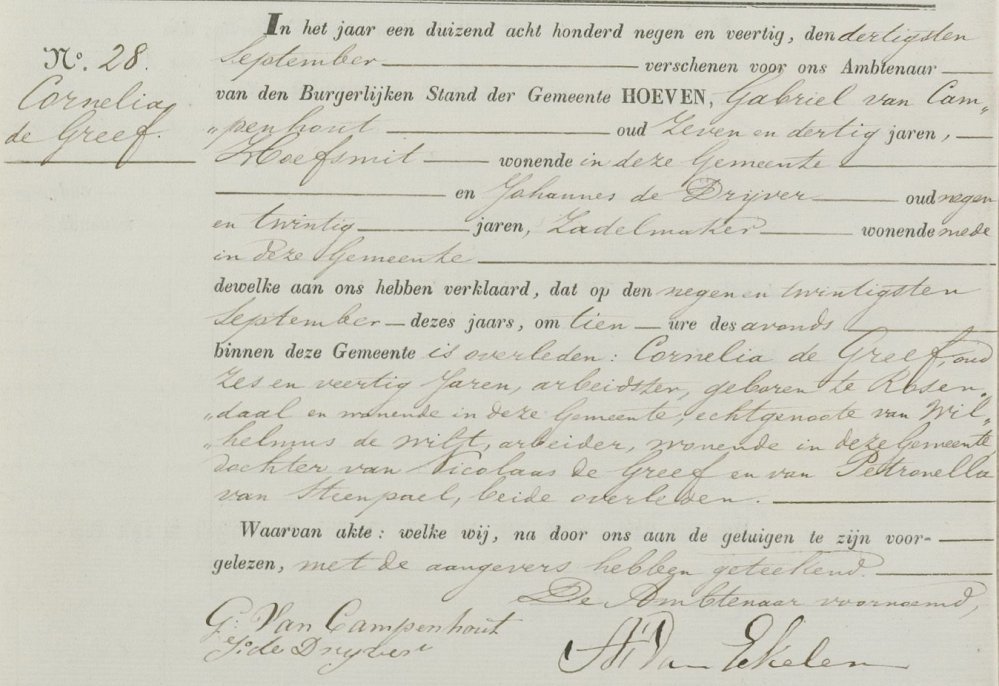 No. 28.
Cornelia
de Greef.
In het jaar een duizend acht honderd negen en veertig, den dertigsten
September verschenen voor ons Ambtenaar
van den Burgerlijken Stand der Gemeente HOEVEN, Gabriel van Cam„
„penhout oud Zeven en dertig jaren,
Hoefsmit wonende in deze Gemeente
en Johannes de Drijver oud negen
en twintig jaren, Zadelmaker wonende mede
in deze Gemeente
dewelke aan ons hebben verklaard, dat op den negen en twintigsten
September dezes jaars, om tien ure des avonds
binnen deze Gemeente is overleden: Cornelia de Greef, oud
Zes en veertig Jaren, arbeidster, geboren te Rosen„
„daal en wonende in deze Gemeente, echtgenoote van Wil„
„helmus de Wilt, arbeider, wonende in deze Gemeente,
dochter van Nicolaas de Greef en van Petronella
van Steenpael, beide overleden.
Waarvan akte: welke wij, na door ons aan de getuigen te zijn voor-
gelezen, met de aangevers hebben geteekend.
De Ambtenaar voornoemd,
G: Van Campenhout
Js: de Drijver
Van Ekelen